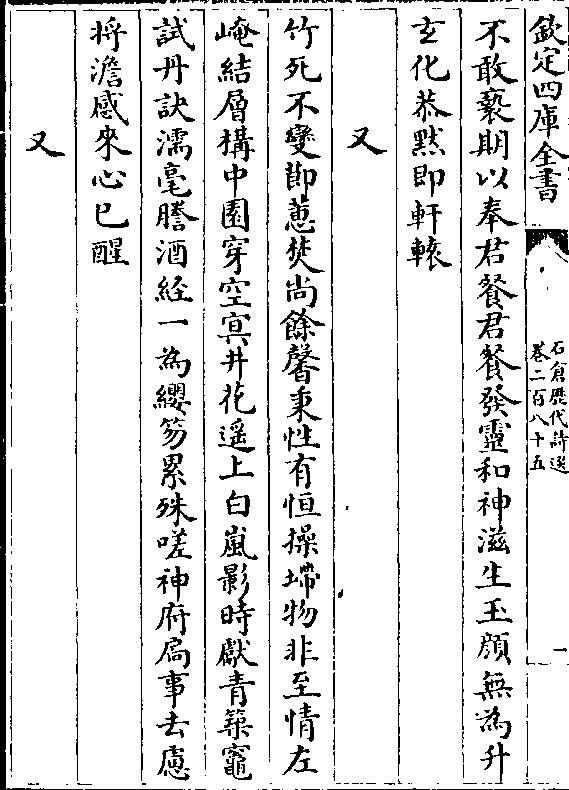 欽定四庫全書
石倉歷代詩選
卷二百八十五
一
不敢褻期以奉君餐君餐發靈和神滋生玉顔無為升
玄化恭黙即軒轅
又
竹死不變節蕙焚尚餘馨秉性有恒操墆物非至情左
崦結層搆中園穿窅冥井花遥上白嵐影時獻青築竈
試丹訣濡毫謄酒經一為纓笏累殊嗟神府扃事去慮
将澹感來心已醒
又